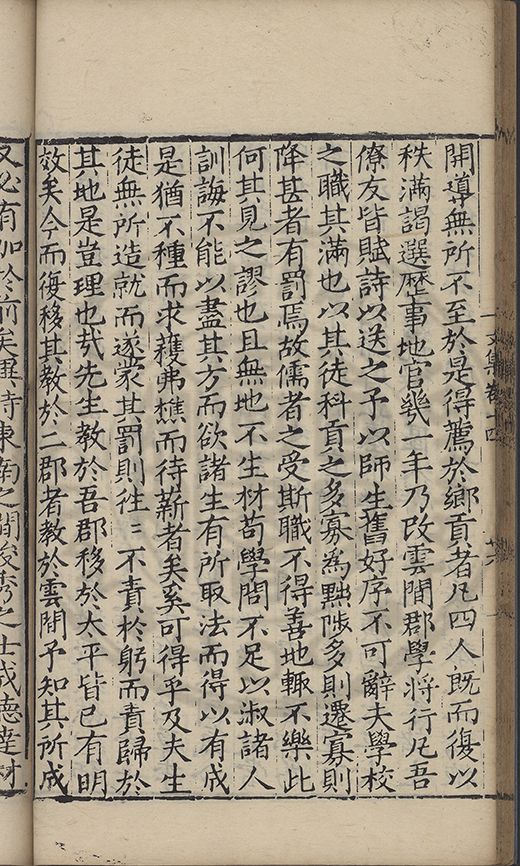 開導無所不至於是得薦於鄉貢者凡四人既而復以
秩滿謁選歷事地官幾一年乃改雲間郡學將行凡吾
僚友皆賦詩以送之予以師生舊好序不可辭夫學校
之職其滿也以其徒科貢之多寡為黜陟多則遷寡則
降甚者有罰焉故儒者之受斯職不得善地輒不樂此
何其見之謬也且無地不生材苟學問不足以淑諸人
訓誨不能以盡其方而欲諸生有所取法而得以有成
是猶不種而求穫弗樵而待薪者矣奚可得乎及夫生
徒無所造就而遂蒙其罰則往〻不責於躬而責歸於
其地是豈理也哉先生教於吾郡移於太平皆已有明
效矣今而復移其教於二郡者教於雲間予知其所成
又必有加於前矣異時東南之間俊秀之士成德達材
文集卷十四